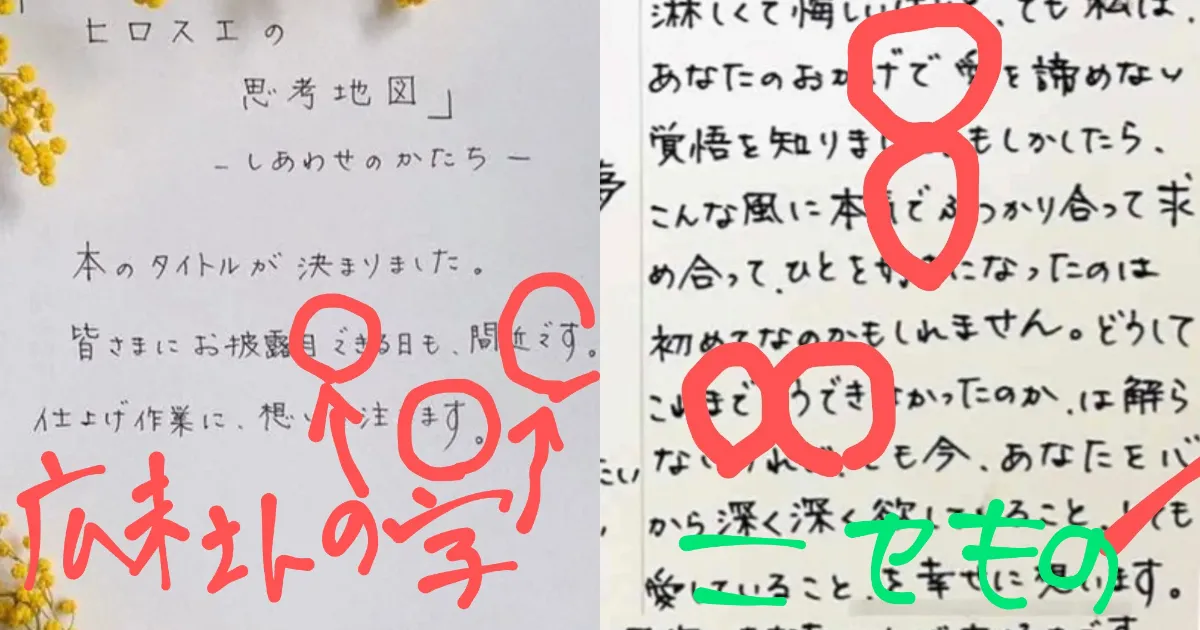 ヒロスエの
思考地図」
－しあわせのかたち－
本のタイトルが決まりました。
皆さまにお披露目できる日も、間近です。
仕上げ作業に、想い注ぎます。
広末さんの字
淋しくて悔しい
、でも私は、
あなたのおかげで愛を諦めない
覚悟を知りまし
もしかしたら、
こんな風に本気でぶつかり合って求
め合って、ひとを好きになったのは
初めてなのかもしれません。どうして
これまでそうできなかったのか、は解ら
ないけれど、でも今、あなたを心
から深く深く欲していること、とても
愛していること、を幸せに想います。
夢
たい
ニセもの